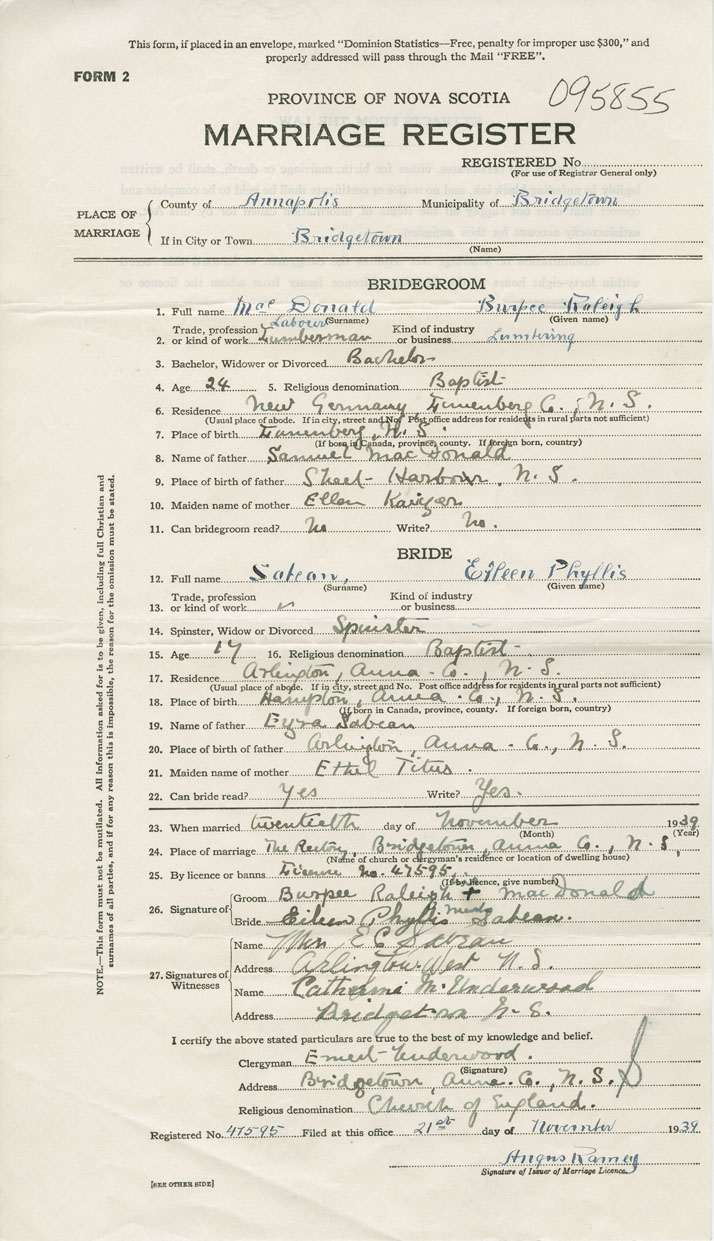 This form, if placed in an envelope, marked "Dominion Statistics—Free, penalty for improper use $300," and
properly addressed will pass through the Mail "FREE".
FORM 2
PROVINCE OF NOVA SCOTIA
095855
MARRIAGE REGISTER
REGISTERED No.
(For use of Registrar General only)
PLACE OF MARRIAGE
County of Annapolis Municipality of Bridgetown
If in City or Town Bridgetown
(Name)
BRIDEGROOM
1. Full name Mac Donald Burpee Raleigh
(Surname) (Given name)
Labourer
2. Trade, profession or kind of work Lumberman Kind of industry or business Lumbering
3. Bachelor, Widower or Divorced Bachelor
4. Age 24 5. Religious denomination Baptist
6. Residence New Germany, Lunenberg Co., N. S.
(Usual place of abode. If in city, street and No. Post office address for residents in rural parts not sufficient)
7. Place of birth Lunenberg, N. S.
(If born in Canada, province, county. If foreign born, country)
8. Name of father Samuel Mac Donald
9. Place of birth of father Sheet Harbour, N. S.
10. Maiden name of mother Ellen
11. Can bridegroom read? No Write? No.
BRIDE
12. Full name Sabean, Eileen Phyllis
(Surname) (Given name)
13. Trade, profession or kind of work Kind of industry or business
14. Spinster, Widow or Divorced Spinster
15. Age 17 16. Religious denomination Baptist
17. Residence Arlington, Anna. Co., N. S.
(Usual place of abode. If in city, street and No. Post office address for residents in rural parts not sufficient)
18. Place of birth Hampton, Anna. Co., N. S.
(If born in Canada, province, county. If foreign born, country)
19. Name of father Ezra Sabean
20. Place of birth of father Arlington, Anna. Co., N. S.
21. Maiden name of mother Ethel Titus.
22. Can bride read? Yes Write? Yes.
23. When married twentieth day of November 1939
(Month) (Year)
24. Place of marriage The Rectory, Bridgetown, Anna Co., N. S.,
(Name of church or clergyman's residence or location of dwelling house)
25. By licence or banns License No. 47595.
(If by licence, give number)
26. Signature of
Groom Burpee Raleigh + MacDonald
Bride Eileen Phyllis Sabean.
27. Signatures of Witnesses
Name Mrs E C Sabean
Address Arlington West N. S.
Name Catherine M. Underwood
Address Bridgetown N. S.
I certify the above stated particulars are true to the best of my knowledge and belief.
Clergyman Ernest Underwood.
(Signature)
Address Bridgetown, Anna. Co., N. S.
Religious denomination Church of England.
Registered No. 47595 Filed at this office 21st day of November 1939
Angus Ramey
Signature of Issuer of Marriage Licence.
[SEE OTHER SIDE]
NOTE.—This form must not be mutilated. All information asked for is to be given, including full Christian and
surnames of all parties, and if for any reason this is impossible, the reason for the omission must be stated.